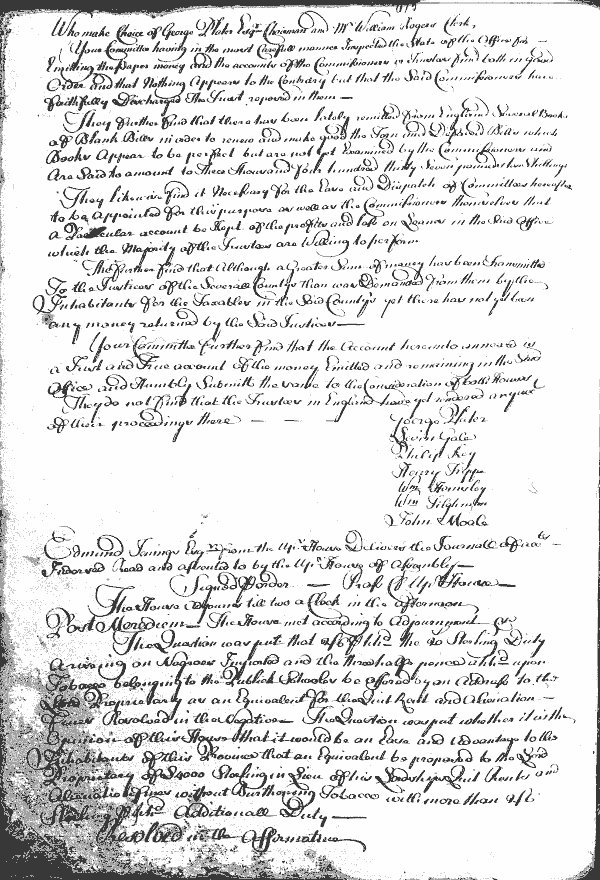 Who make Choice of George Plater Esqr. Chairman and Mr. William Rogers Clerk,
Your Committee having in the most Carefull manner Inspected the State of the Office for
Emitting the Paper money and the accounts of the Commissioners or Trustees find both in Good
Order and that Nothing Appears to the Contrary but that the Said Commissioners have
faithfully Discharged the Trust reposed in them —
They further find that there has been lately remitted from England Several Books
of Blank Bills in order to renew and make good the Torn and Defaced Bills which
Books Appear to be perfect but are not yet Examined by the Commissioners and
are Said to amount to Three Thousand four hundred thirty Seven pounds ten Shillings
They likewise find it Necessary for the Ease and Dispatch of Committees hereafter
to be appointed for this purpose as well as the Commissioners themselves that
a Particular account be Kept of the profits and loss on Loanes in the Said Office
which the Majority of the Trustees are Willing to perform
The further find that Although a Greater Sum of money has been transmitted
To the Justices of the Severall Countys than was Demanded from them by the
Inhabitants for the Taxables in the Said Countys yet there has not yet been
any money returned by the Said Justices —
Your Committe further find that the Account hereunto annexed is
a Just and True account of the money Emitted and remaining in the Said
Office and Humbly Submitt the same to the Consideration of both Houses
They do not find that the Trustees in England have yet rendered any acct
of their proceedings there — — —
George Plater
Levin Gale
Philip Key
Henry Tripp
Wm Hemsley
Wm Tilghman
John Moale
Edmund Jenings Esqr. from the Upr. House Delivers the Journall of
Indorsed Read and assented to by the Upr. House of Assembly —
Signed Order — Pres. of Upr. House —
The House adjourns till two a Clock in the afternoon
Post Meridiem — The House met according to Adjournment
The Question was put that 2/6 P hhd. the 20 Sterling Duty
Arising on Negroes Imported and the three half pence P hhd. upon
Tobacco belonging to the Publick Schooles be offered by an Address to the
Lord Proprietary as an Equivalent for the Quit Rent and Alienation —
fines Resolved in the Negative — The Question was put whether it is the
Opinion of this House that it would be an Ease and Advantage to the
Inhabitants of this Province that an Equivalent be proposed to the Lord
Proprietary of £4000 Sterling in Lieu of his Lordships Quit Rents and
Alienation fines without Burthening Tobacco with more than 2/6
Sterling P hhd. Additionall Duty —
Resolved in the Affirmative